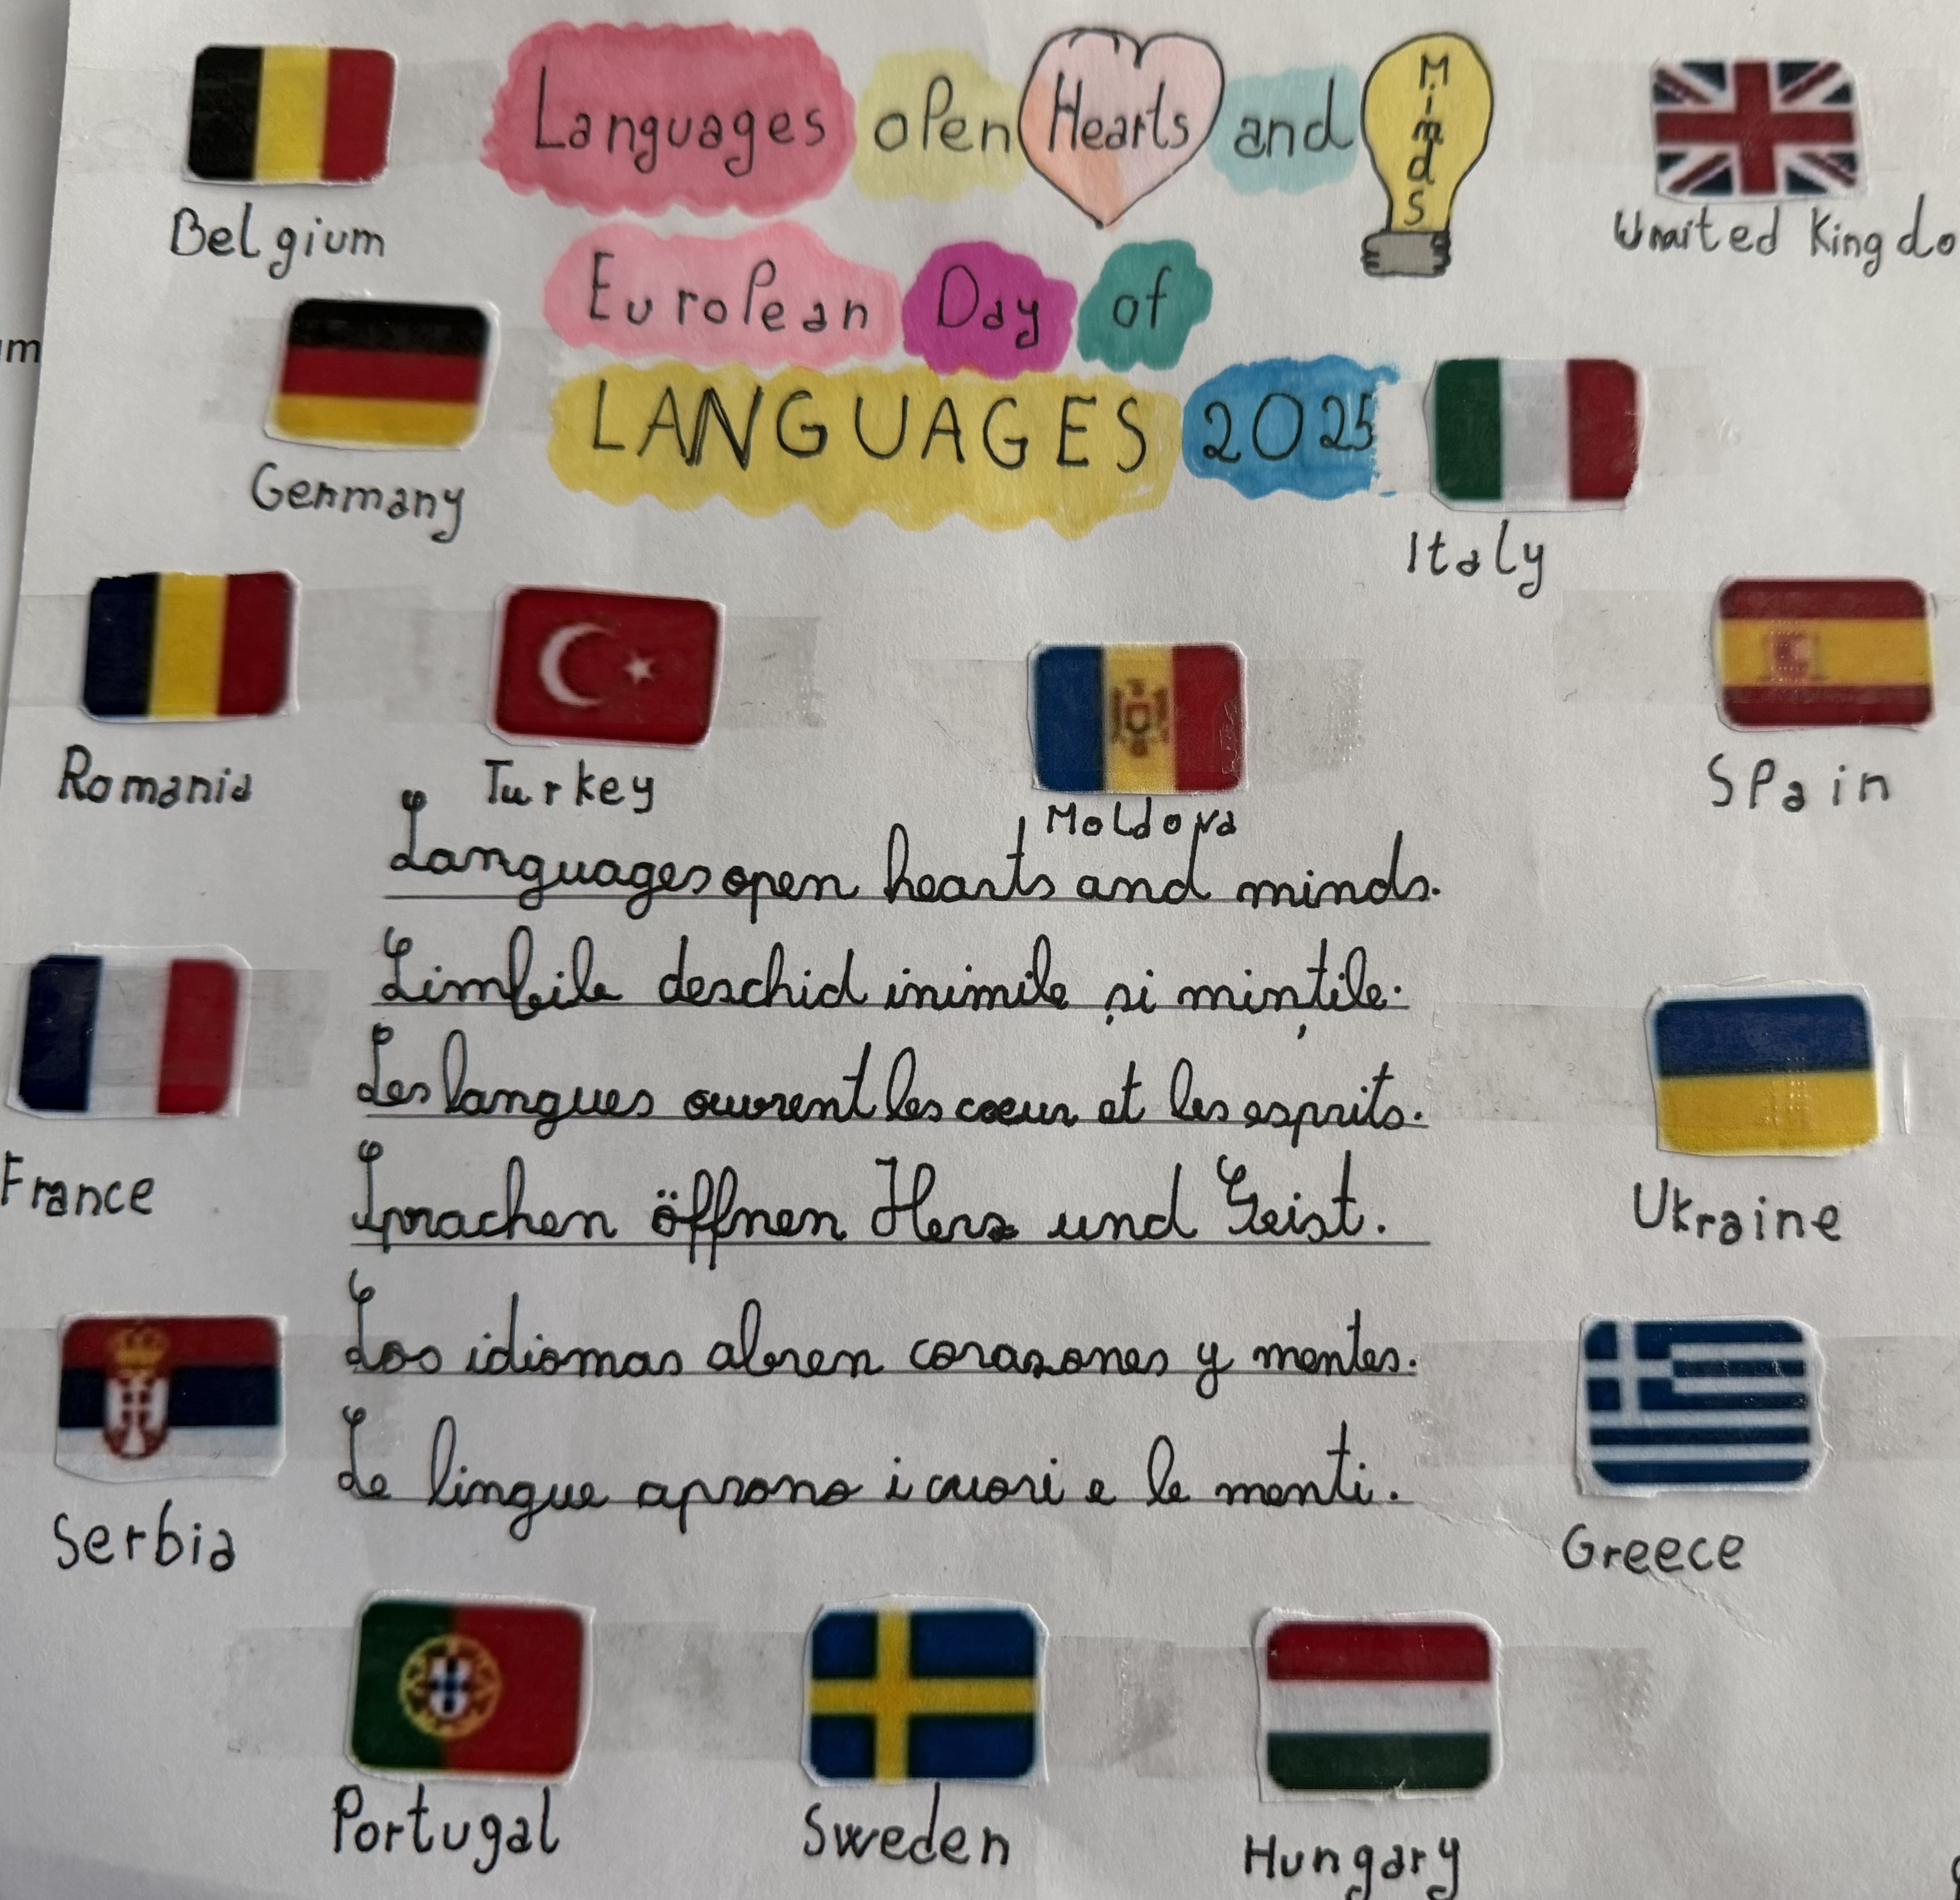 Languages open Hearts and Minds
Belgium
United Kingdo
European Day of
LANGUAGES 2025
Germany
Italy
Romania
Turkey
Moldova
Spain
Languages open hearts and minds.
Limbile deschid inimile și mințile.
Les langues ouvrent les coeur et les esprits.
France
Sprachen öffnen Herz und Geist.
Ukraine
Los idiomas abren corazones y mentes.
Le lingue aprono i cuori e le menti.
Serbia
Greece
Portugal
Sweden
Hungary